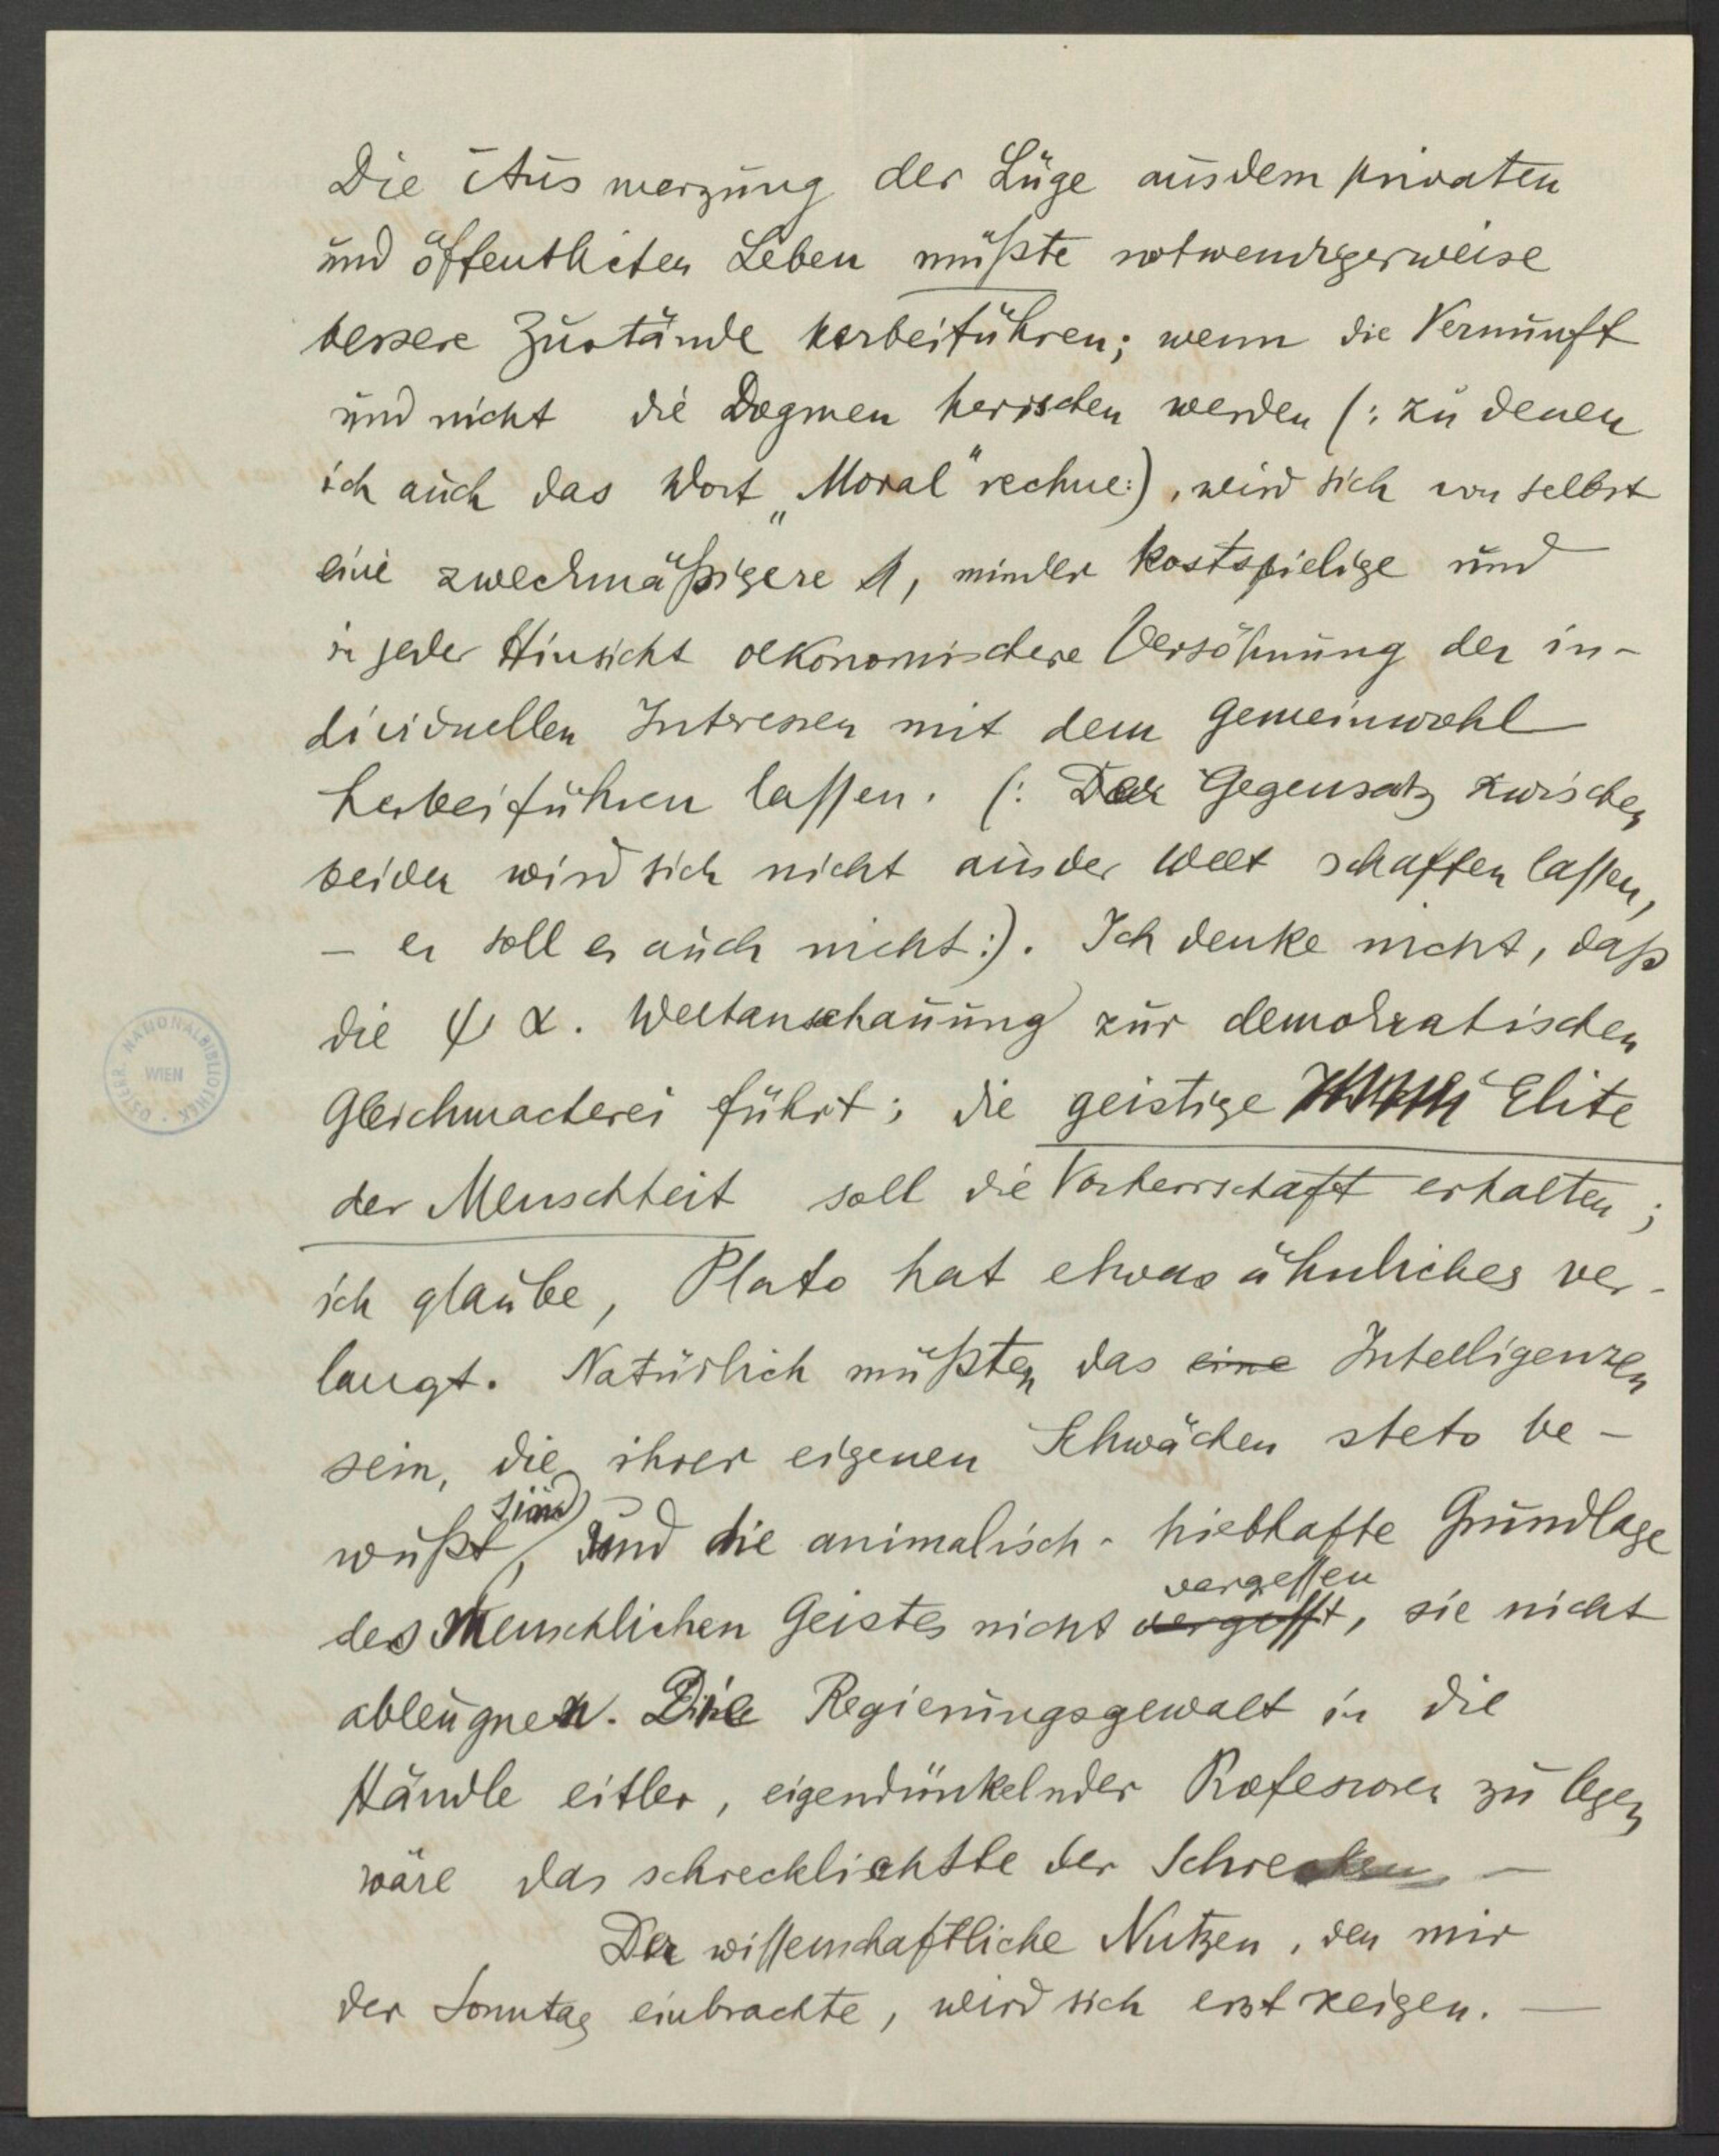 Die Ausmerzung der Lüge aus dem privaten
und öffentlichen Leben müßte notwendigerweise
bessere Zustände herbeiführen; wenn die Vernunft
und nicht die Dogmen herrschen werden (: zu denen
ich auch das Wort „Moral" rechne:), wird sich von selbst
eine zweckmäßigere, minder kostspielige und
in jeder Hinsicht oekonomischere Versöhnung der in-
dividuellen Interessen mit dem Gemeinwohl
herbeiführen lassen. (: Der Gegensatz zwischen
beiden wird sich nicht aus der Welt schaffen lassen,
– er soll es auch nicht:). Ich denke nicht, daß
die ψα. Weltanschauung zur demokratischen
Gleichmacherei führt; die geistige Elite
der Menschheit soll die Vorherrschaft erhalten;
ich glaube, Plato hat etwas ähnliches ver-
langt. Natürlich müßten das eine Intelligenzen
sein, die ihrer eigenen Schwächen stets be-
wußt sind, und die animalisch-triebhafte Grundlage
des Menschlichen Geistes nicht vergißt vergessen, sie nicht
ableugnen. Die Regierungsgewalt in die
Hände eitler, eigendünkelnder Professoren zu legen
wäre das schrecklichste der Schrecken –
Der wissenschaftliche Nutzen, den mir
der Sonntag einbrachte, wird sich erst zeigen. —
ÖSTERR. NATIONALBIBLIOTHEK
WIEN